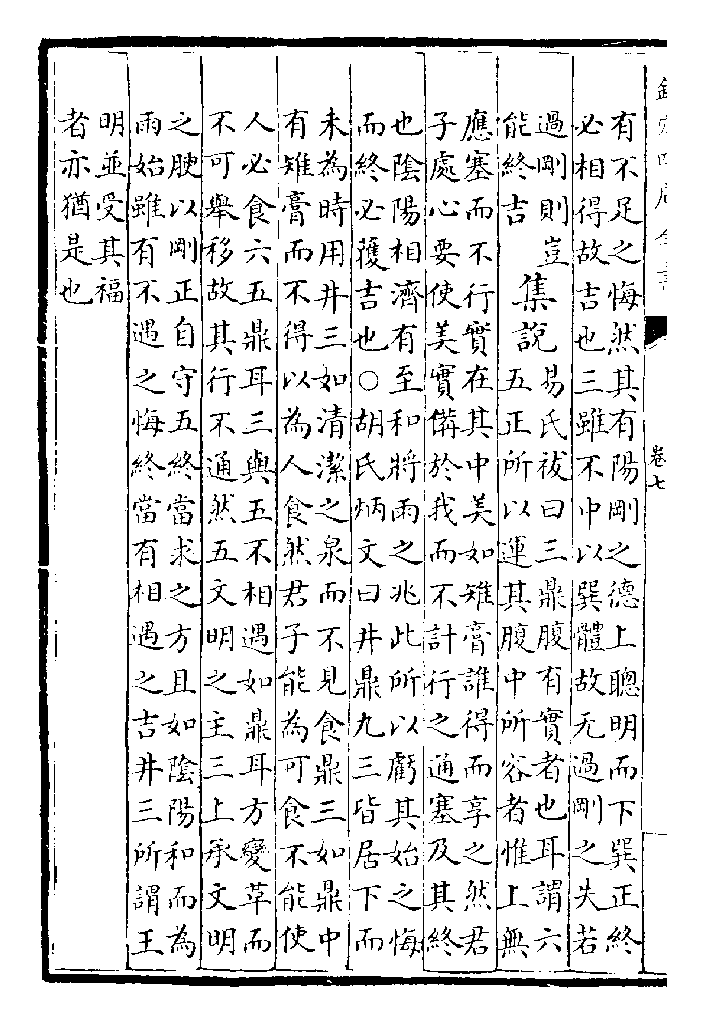 欽定四庫全書 卷七
有不足之悔然其有陽剛之德上聰明而下巽正終
必相得故吉也三雖不中以巽體故无過剛之失若
過剛則豈
能終吉
集說
易氏祓曰三鼎腹有實者也耳謂六
五正所以運其腹中所容者惟上無
應塞而不行實在其中美如雉膏誰得而享之然君
子處心要使美實備於我而不計行之通塞及其終
也陰陽相濟有至和將雨之兆此所以虧其始之悔
而終必獲吉也○胡氏炳文曰井鼎九三皆居下而
未為時用井三如清潔之泉而不見食鼎三如鼎中
有雉膏而不得以為人食然君子能為可食不能使
人必食六五鼎耳三與五不相遇如鼎耳方變革而
不可舉移故其行不通然五文明之主三上承文明
之腴以剛正自守五終當求之方且如陰陽和而為
雨始雖有不遇之悔終當有相遇之吉井三所謂王
明並受其福
者亦猶是也